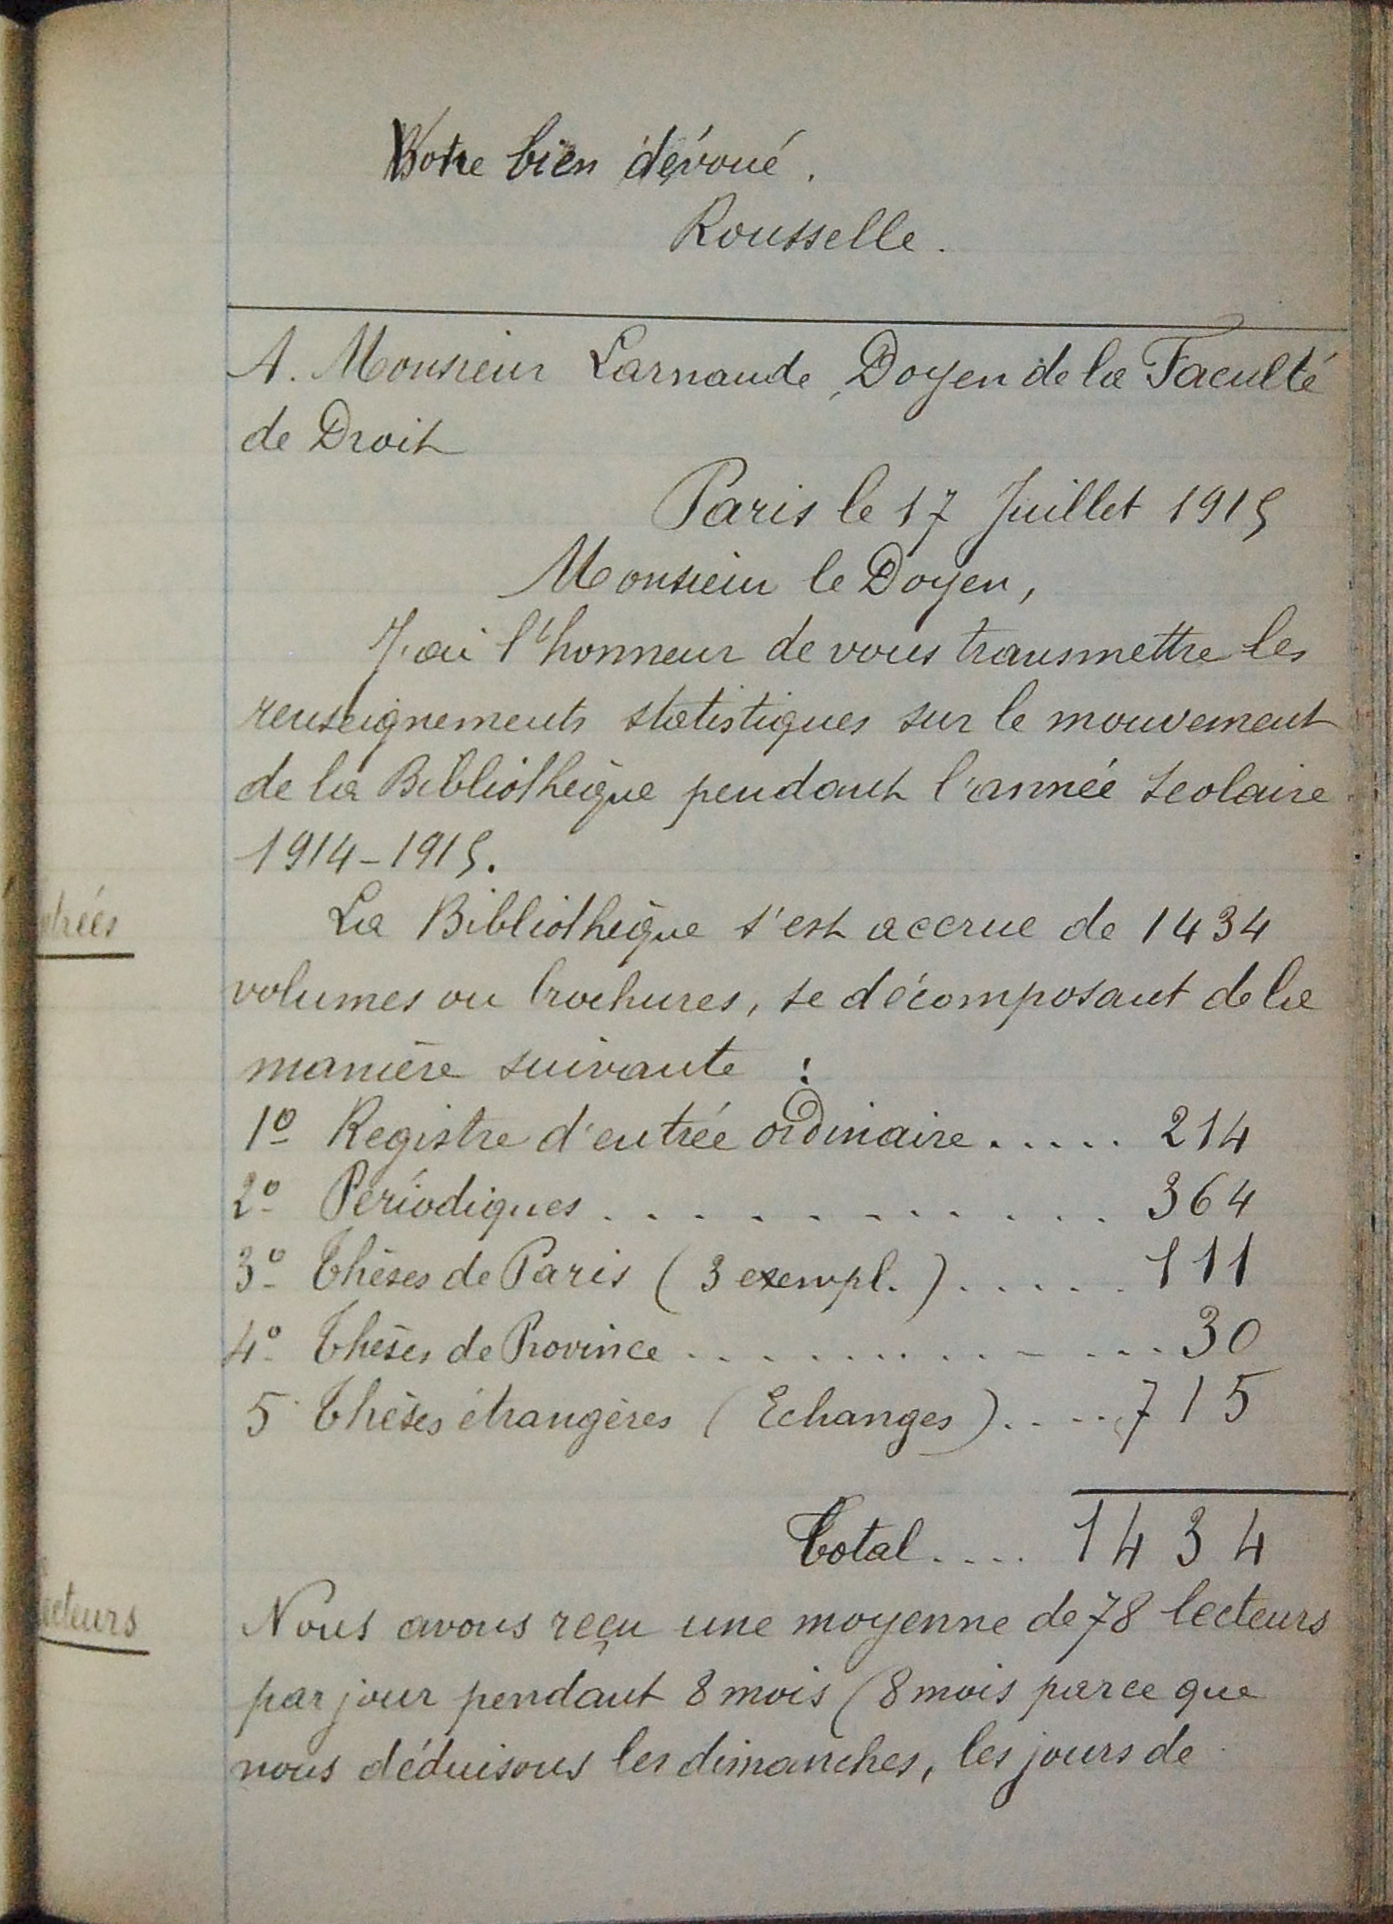 Votre bien dévoué.
Rousselle.
A. Monsieur Larnaude, Doyen de la Faculté
de Droit
Paris le 17 Juillet 1915
Monsieur le Doyen,
J'ai l'honneur de vous transmettre les
renseignements statistiques sur le mouvement
de la Bibliothèque pendant l'année scolaire
1914-1915.
La Bibliothèque s'est accrue de 1434
volumes ou brochures, se décomposant de la
manière suivante :
1º Registre d'entrée ordinaire ..... 214
2º Périodiques ........... 364
3º Thèses de Paris (3 exempl.) ..... 111
4º Thèses de Province ............ 30
5 Thèses étrangères (Echanges) .... 715
Total .... 1434
ecteurs
Nous avons reçu une moyenne de 78 lecteurs
par jour pendant 8 mois (8 mois parce que
nous déduisons les dimanches, les jours de